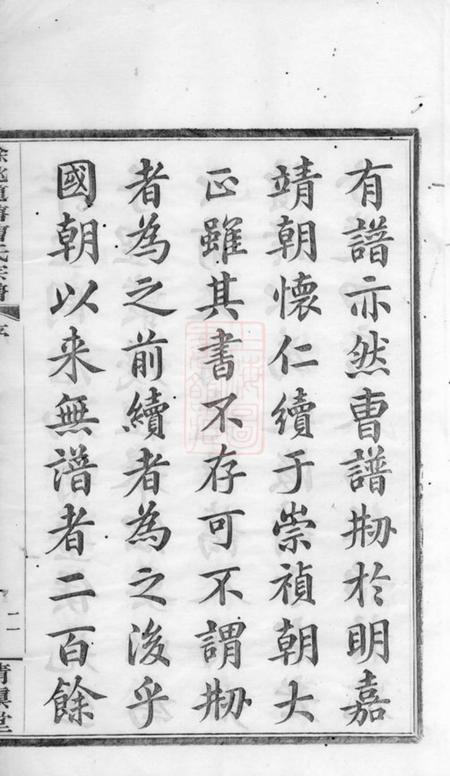 有譜亦然曹譜刱於明嘉
靖朝懷仁續于崇禎朝大
正雖其書不存可不謂刱
者為之前續者為之後乎
國朝以来無譜者二百餘
序
二